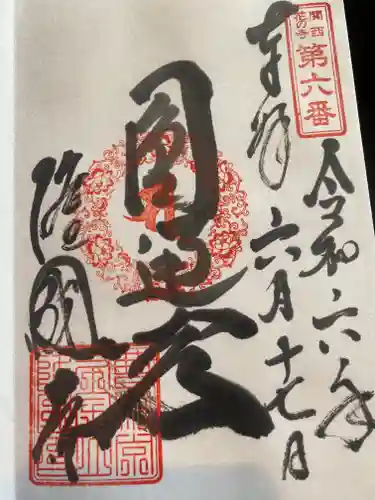 関西
花の寺
第六番
奉拝
令和六年
六月十七日
圓通會
隆國寺